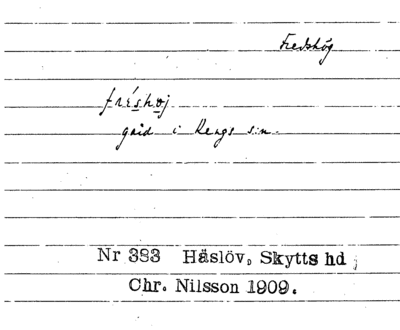 Fredshög
fréshøj
gård i Rengs s:n.
Nr 383 Häslöv, Skytts hd
Chr. Nilsson 1909.